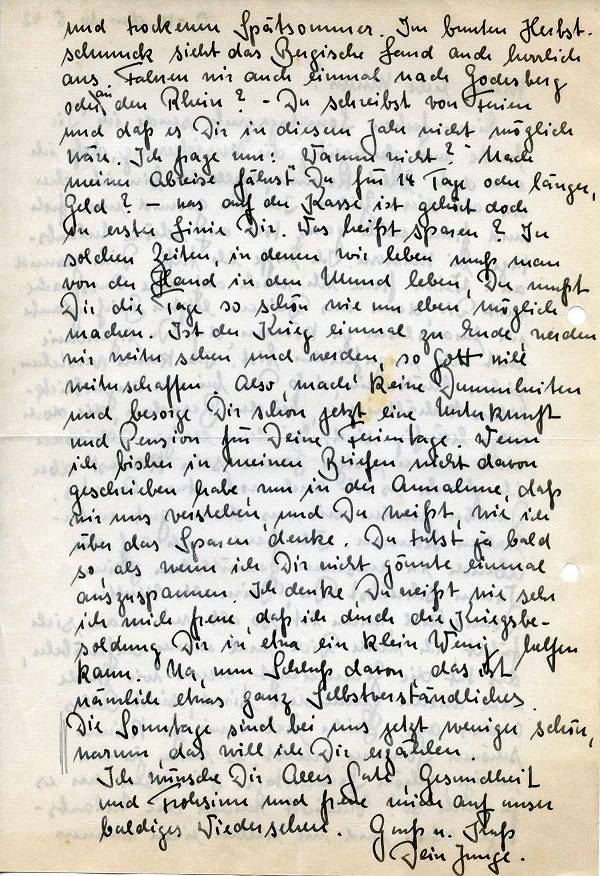 und trockenen Spätsommer. Im bunten Herbst-
schmuck sieht das Bergische Land auch herrlich
aus. Fahren wir auch einmal nach Godesberg
oder an den Rhein? - Du schreibst von Ferien
und daß es Dir in diesem Jahr nicht möglich
wäre. Ich frage nun: "Warum nicht?" Nach
meiner Abreise fährst Du für 14 Tage oder länger,
Geld? - was auf der Kasse ist gehört doch
in erster Linie Dir. Was heißt sparen? In
solchen Zeiten, in denen wir leben muß man
von der Hand in den Mund leben, Du mußt
Dir die Tage so schön wie nur eben möglich
machen. Ist der Krieg einmal zu Ende, werden
wir weiter sehen und werden, so Gott will
weiterschaffen. Also, mach' keine Dummheiten
und besorge Dir schon jetzt eine Unterkunft
und Pension für Deine Ferientage. Wenn
ich bisher in meinen Briefen nicht davon
geschrieben habe, nur in der Annahme, daß
wir uns verstehen, und Du weißt, wie ich
über das Sparen denke. Du tutst ja bald
so, als wenn ich Dir nicht gönnte einmal
auszuspannen. Ich denke, Du weißt wie sehr
ich mich freue, daß ich durch die Kriegsbe-
soldung Dir in etwa ein klein Wenig helfen
kann. Na, nun Schluß davon, das ist
nämlich etwas ganz Selbstverständliches.
Die Sonntage sind bei uns jetzt weniger schön,
warum, das will ich Dir erzählen.
Ich wünsche Dir Alles Gute, Gesundheit
und Frohsinn und freue mich auf unser
baldiges Wiedersehen. Gruß u. Kuß
Dein Junge.